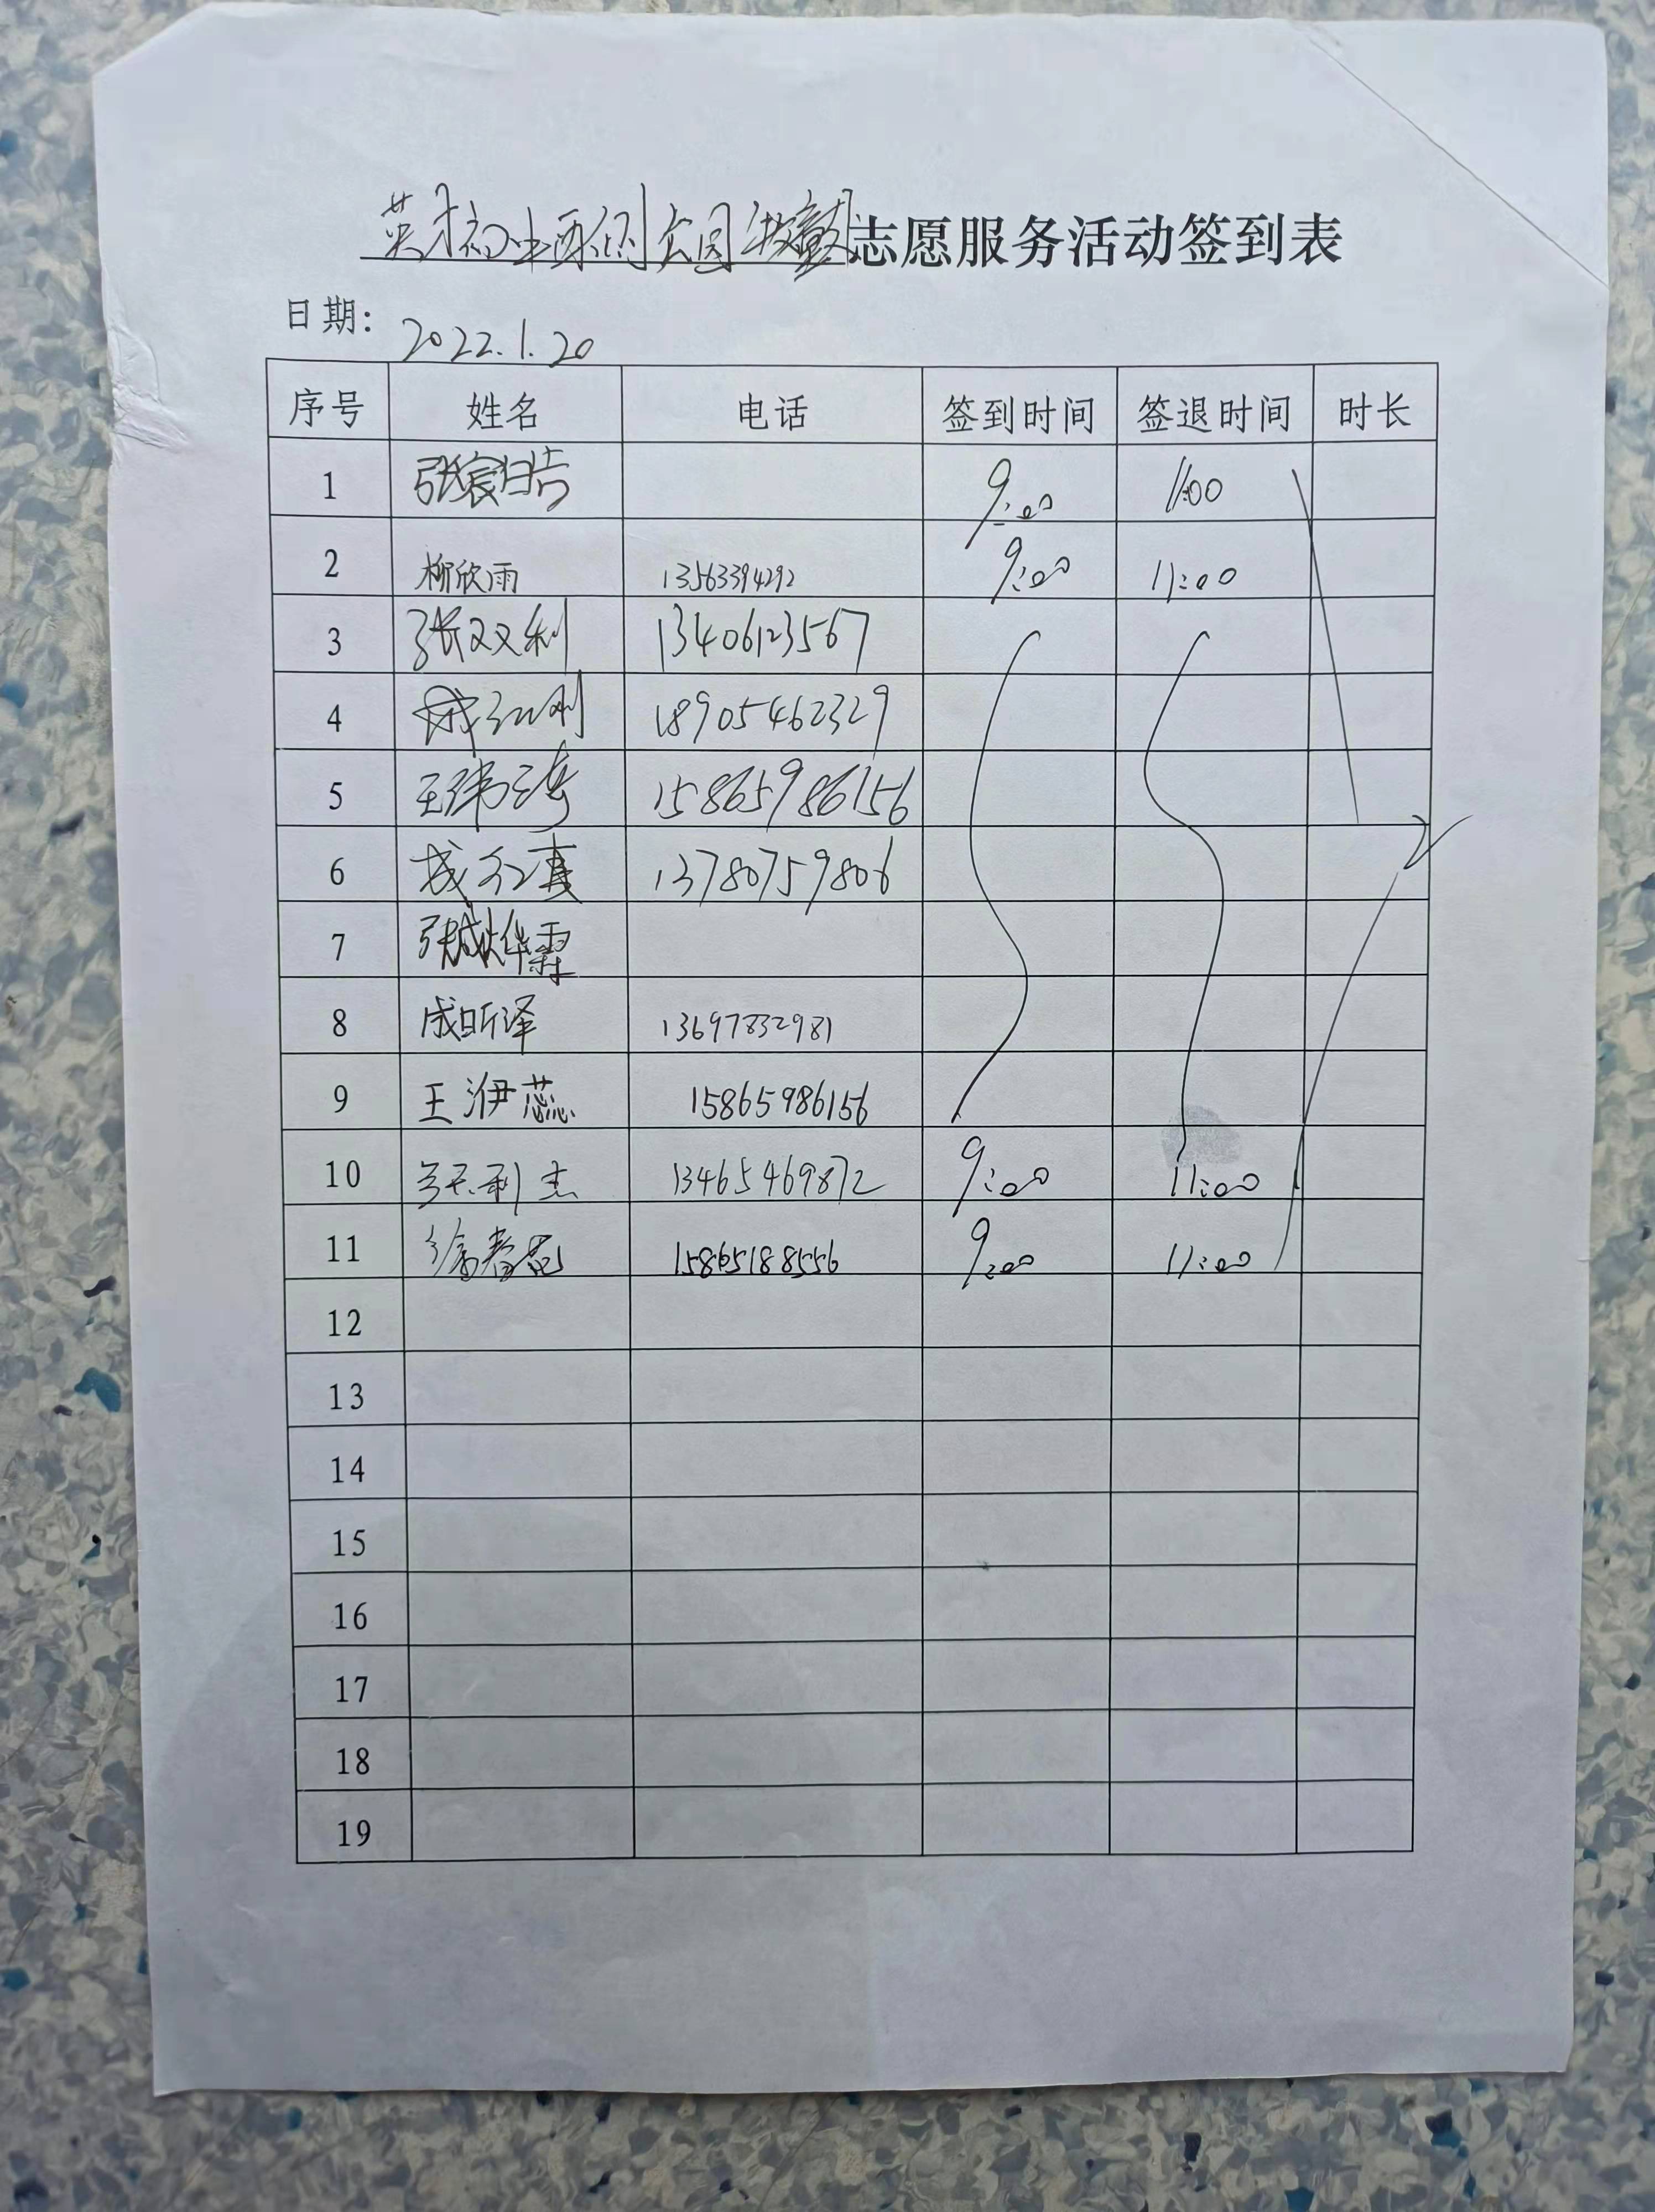 英才初中西侧公园 志愿服务活动签到表
日期: 2022.1.20
序号 姓名 电话 签到时间 签退时间 时长
1 张宸 9:00 11:00
2 柳欣雨 13563394292 9:00 11:00
3 张双利 13406123567
4 成 利 18905462329
5 王玮琦 15865986156
6 成红真 13780759806 2
7 张成烨霖
8 成昕泽 13697832981
9 王洢蕊 15865986156
10 利杰 13465469872 9:00 11:00
11 春花 15865188556 9:00 11:00
12
13
14
15
16
17
18
19